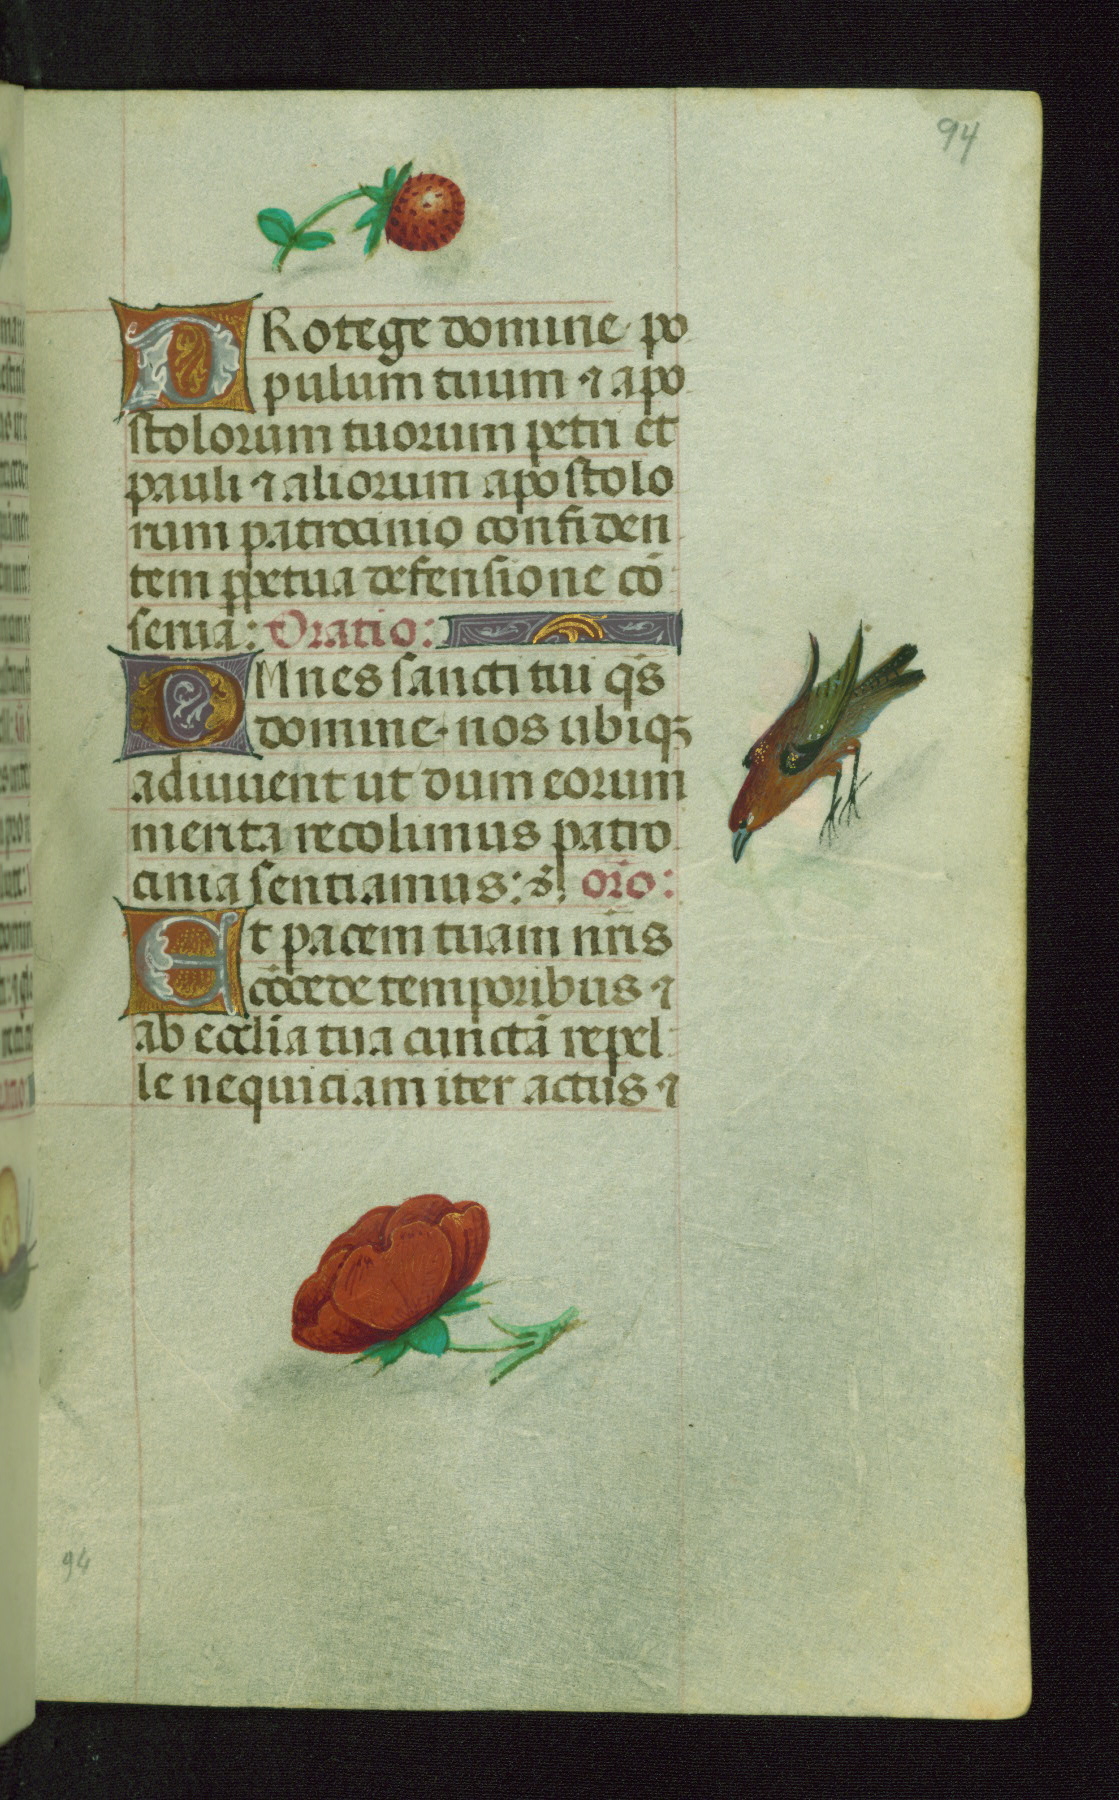 94
PRotege domine po
pulum tuum ⁊ apo
stolorum tuorum petri et
pauli ⁊ aliorum apostolo
rum patrocinio confiden
tem ꝑpetua defensione cō
serua: Oratio:
OMnes sancti tui q̄s
domine nos ubiqꝫ
adiuuent ut dum eorum
merita recolimus patro
cinia sentiamus: or̄o:
Et pacem tuam nr̄is
cōcede temporibus ⁊
ab ecclīa tua cunctā repel
le nequiciam iter actus ⁊
94